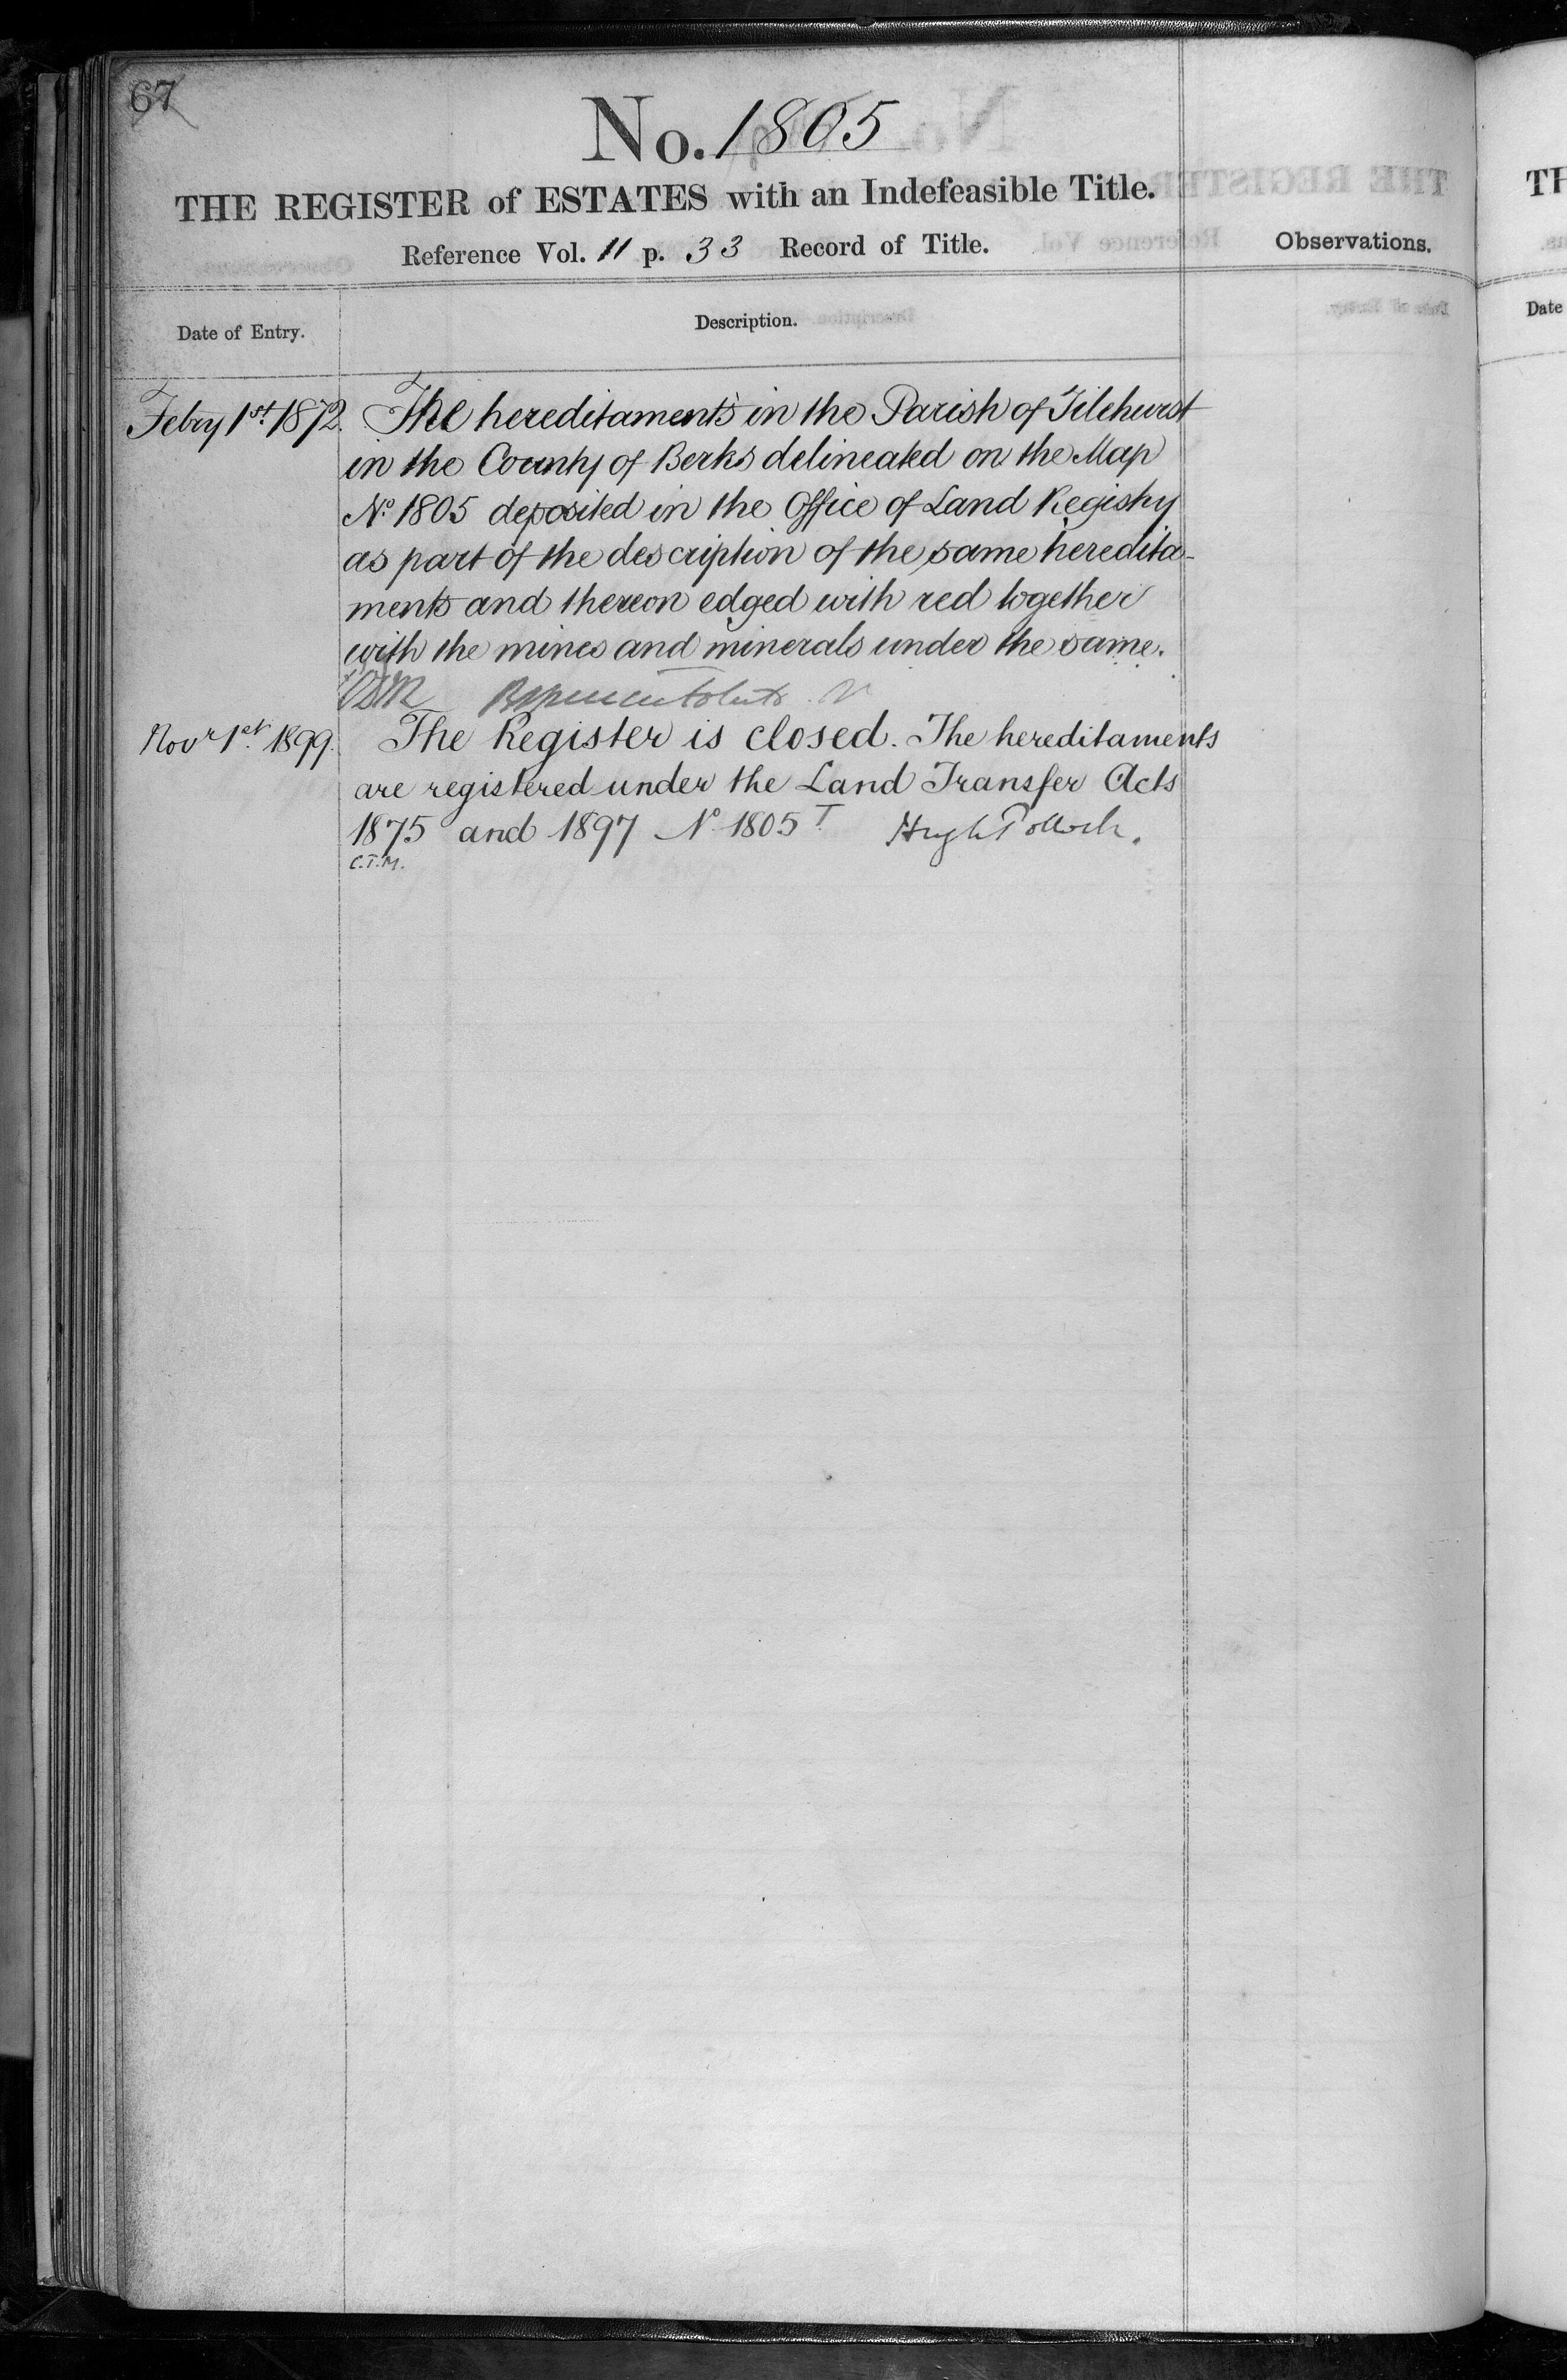 67
No. 1805
THE REGISTER of ESTATES with an Indefeasible Title.
Reference Vol. 11 p. 33 Record of Title.
Observations.
Date of Entry.
Description.
Febry 1st. 1872. The hereditaments in the Parish of Tilehurst
in the County of Berks delineated on the Map
No. 1805 deposited in the Office of Land Registry
as part of the description of the same heredita-
ments and thereon edged with red together
with the mines and minerals under the same.
Novr 1st. 1899. The Register is closed. The hereditaments
are registered under the Land Transfer Acts
1875 and 1897 No 1805 T. Hugh Pollock.
C.T.M.
TH
Date